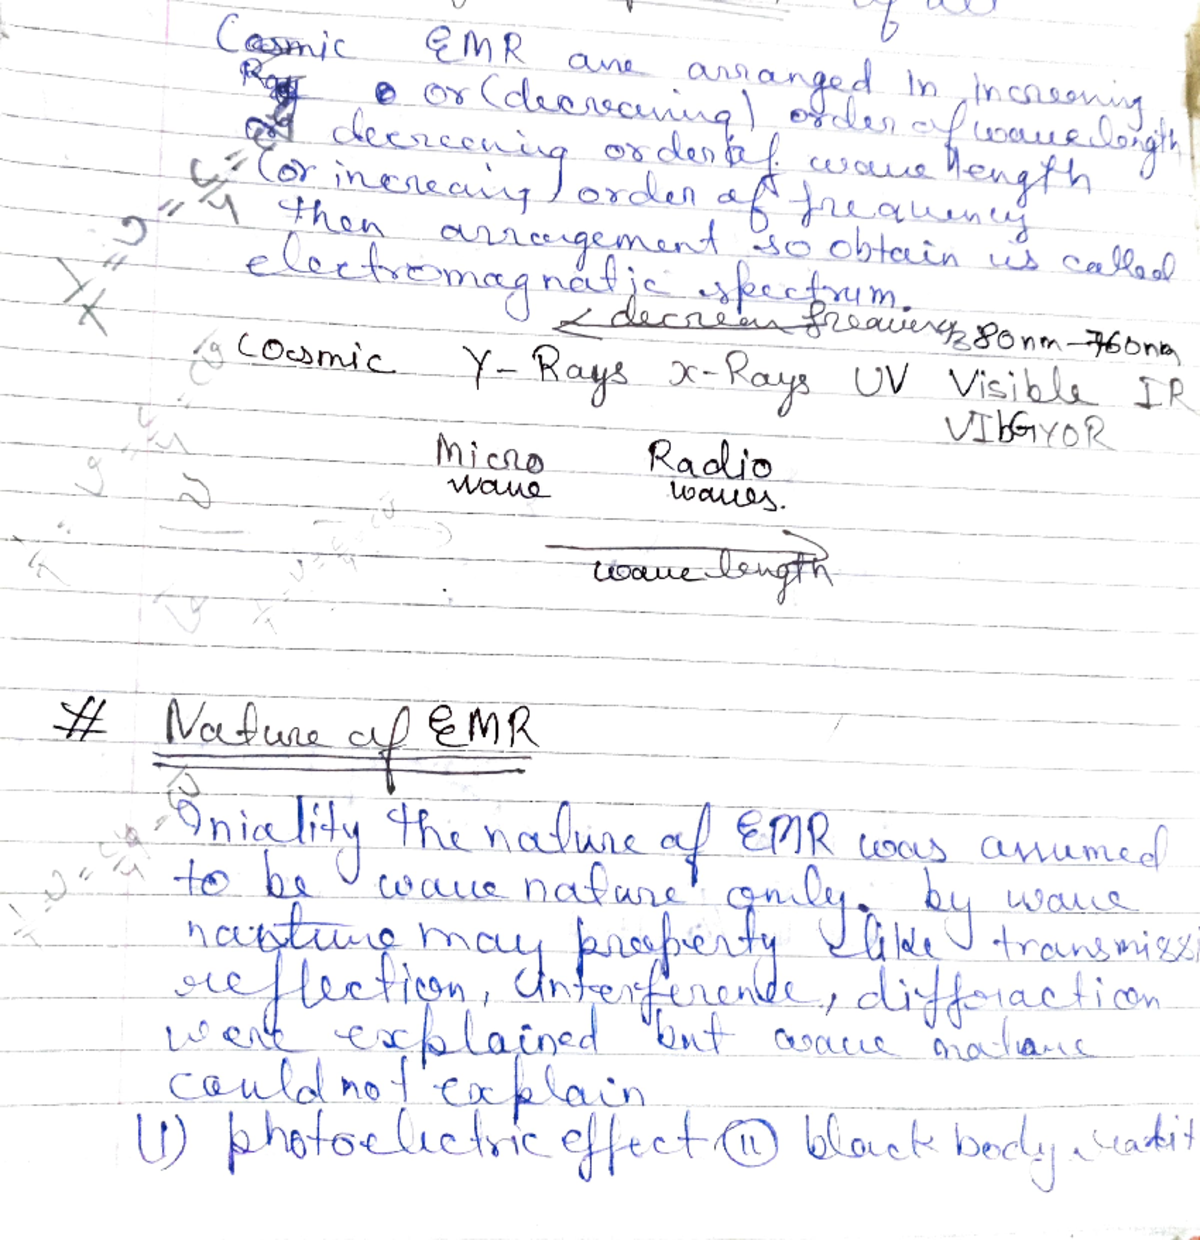 Cosmic EMR are arranged in increasing
Ray or (decreceuing) order of wavelength
decrecening order of wave length
(or increacing) order of frequency
then arrangement so obtain is called
electromagnatic spectrum.
decrean freauency
380nm-760nm
Cosmic γ-Rays x-Rays UV Visible IR
VIbGYOR
Micro Radio
wave waves.
wave length
# Nature of EMR
Inicality the nature of EMR was assumed
to be wave nature only. by wave
nature may property like transmissi
reflection, interference, diffraction
were explained but wave nature
could not explain
(i) photoelectric effect (ii) black body radit